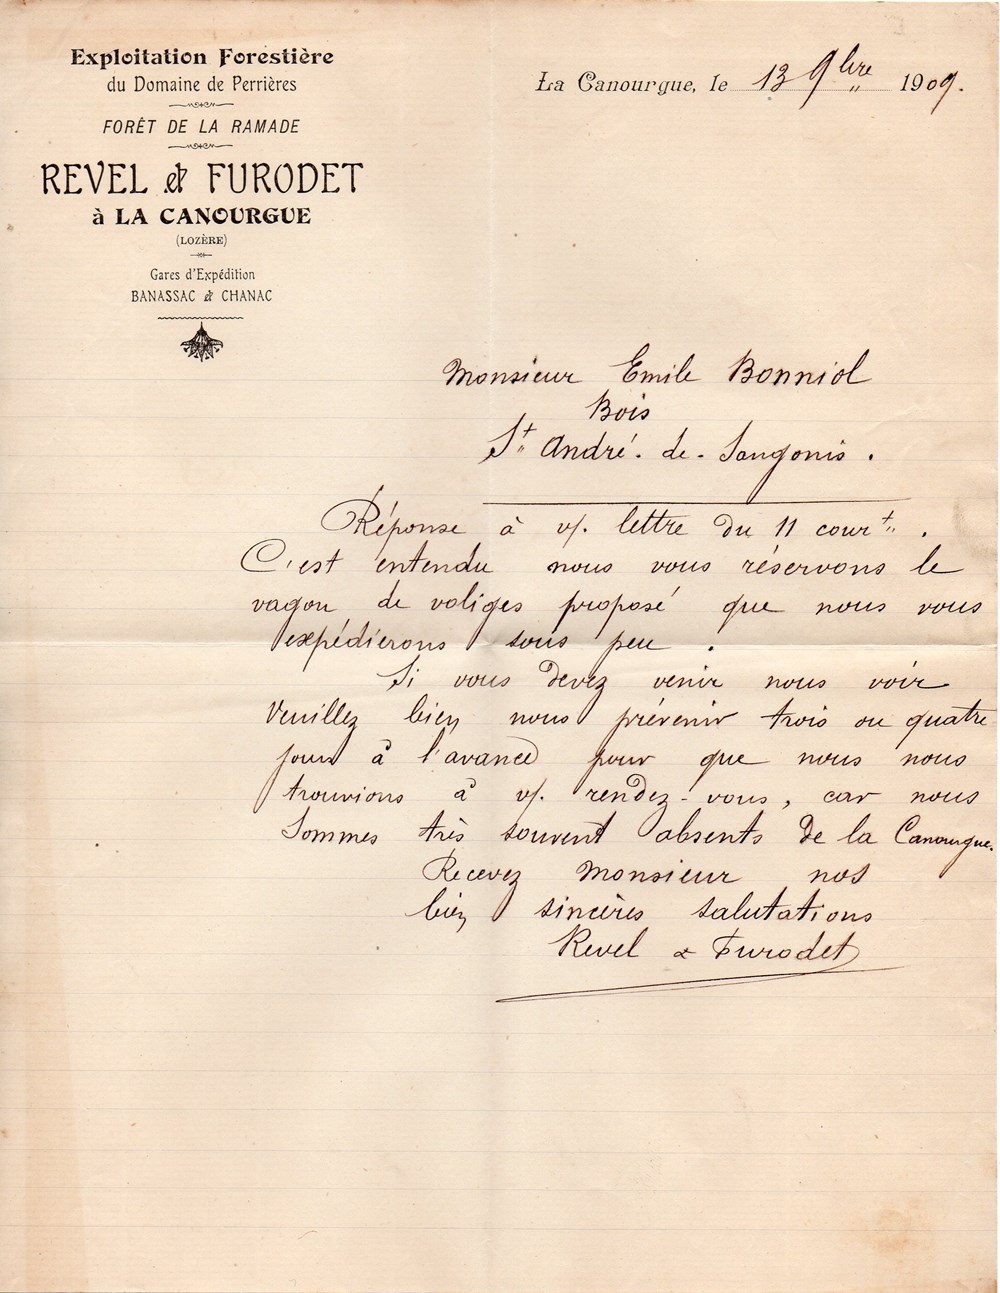 Exploitation Forestière
du Domaine de Perrières
FORÊT DE LA RAMADE
REVEL & FURODET
à LA CANOURGUE
(LOZÈRE)
Gares d'Expédition
BANASSAC & CHANAC
La Canourgue, le 13 9bre 1909.
Monsieur Emile Bonniol
Bois
St André-de-Sangonis.
Réponse à v/. lettre du 11 court.
C'est entendu nous vous réservons le
vagon de voliges proposé que nous vous
expédierons sous peu.
Si vous devez venir nous voir
Veuillez bien nous prévenir trois ou quatre
jours à l'avance pour que nous nous
trouvions à v/. rendez-vous, car nous
sommes très souvent absents de la Canourgue.
Recevez Monsieur nos
bien sincères salutations
Revel & Furodet